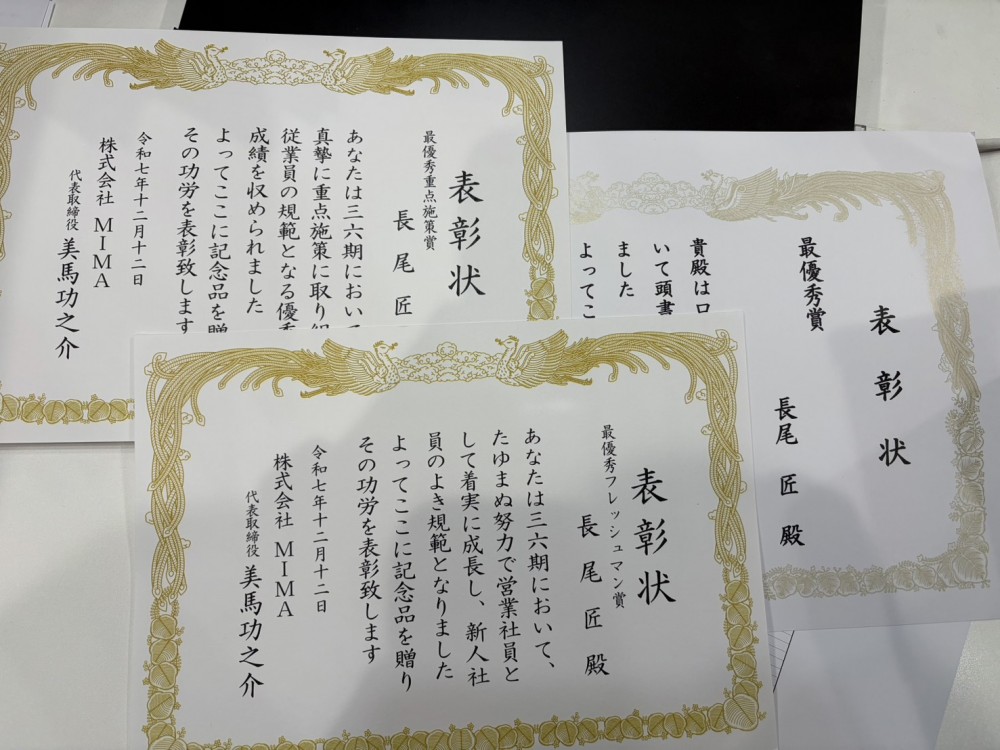 表彰状
最優秀重点施策賞
長尾 匠
あなたは三六期において
真摯に重点施策に取り組
従業員の規範となる優秀
成績を収められました
よってここに記念品を贈
その功労を表彰致します
令和七年十二月十二日
株式会社 MIMA
代表取締役 美馬功之介
表彰状
最優秀賞
長尾 匠 殿
貴殿は
いて頭書
ました
よってこ
表彰状
最優秀フレッシュマン賞
長尾匠殿
あなたは三六期において、
たゆまぬ努力で営業社員と
して着実に成長し、新人社
員のよき規範となりました
よってここに記念品を贈り
その功労を表彰致します
令和七年十二月十二日
株式会社 MIMA
代表取締役 美馬功之介